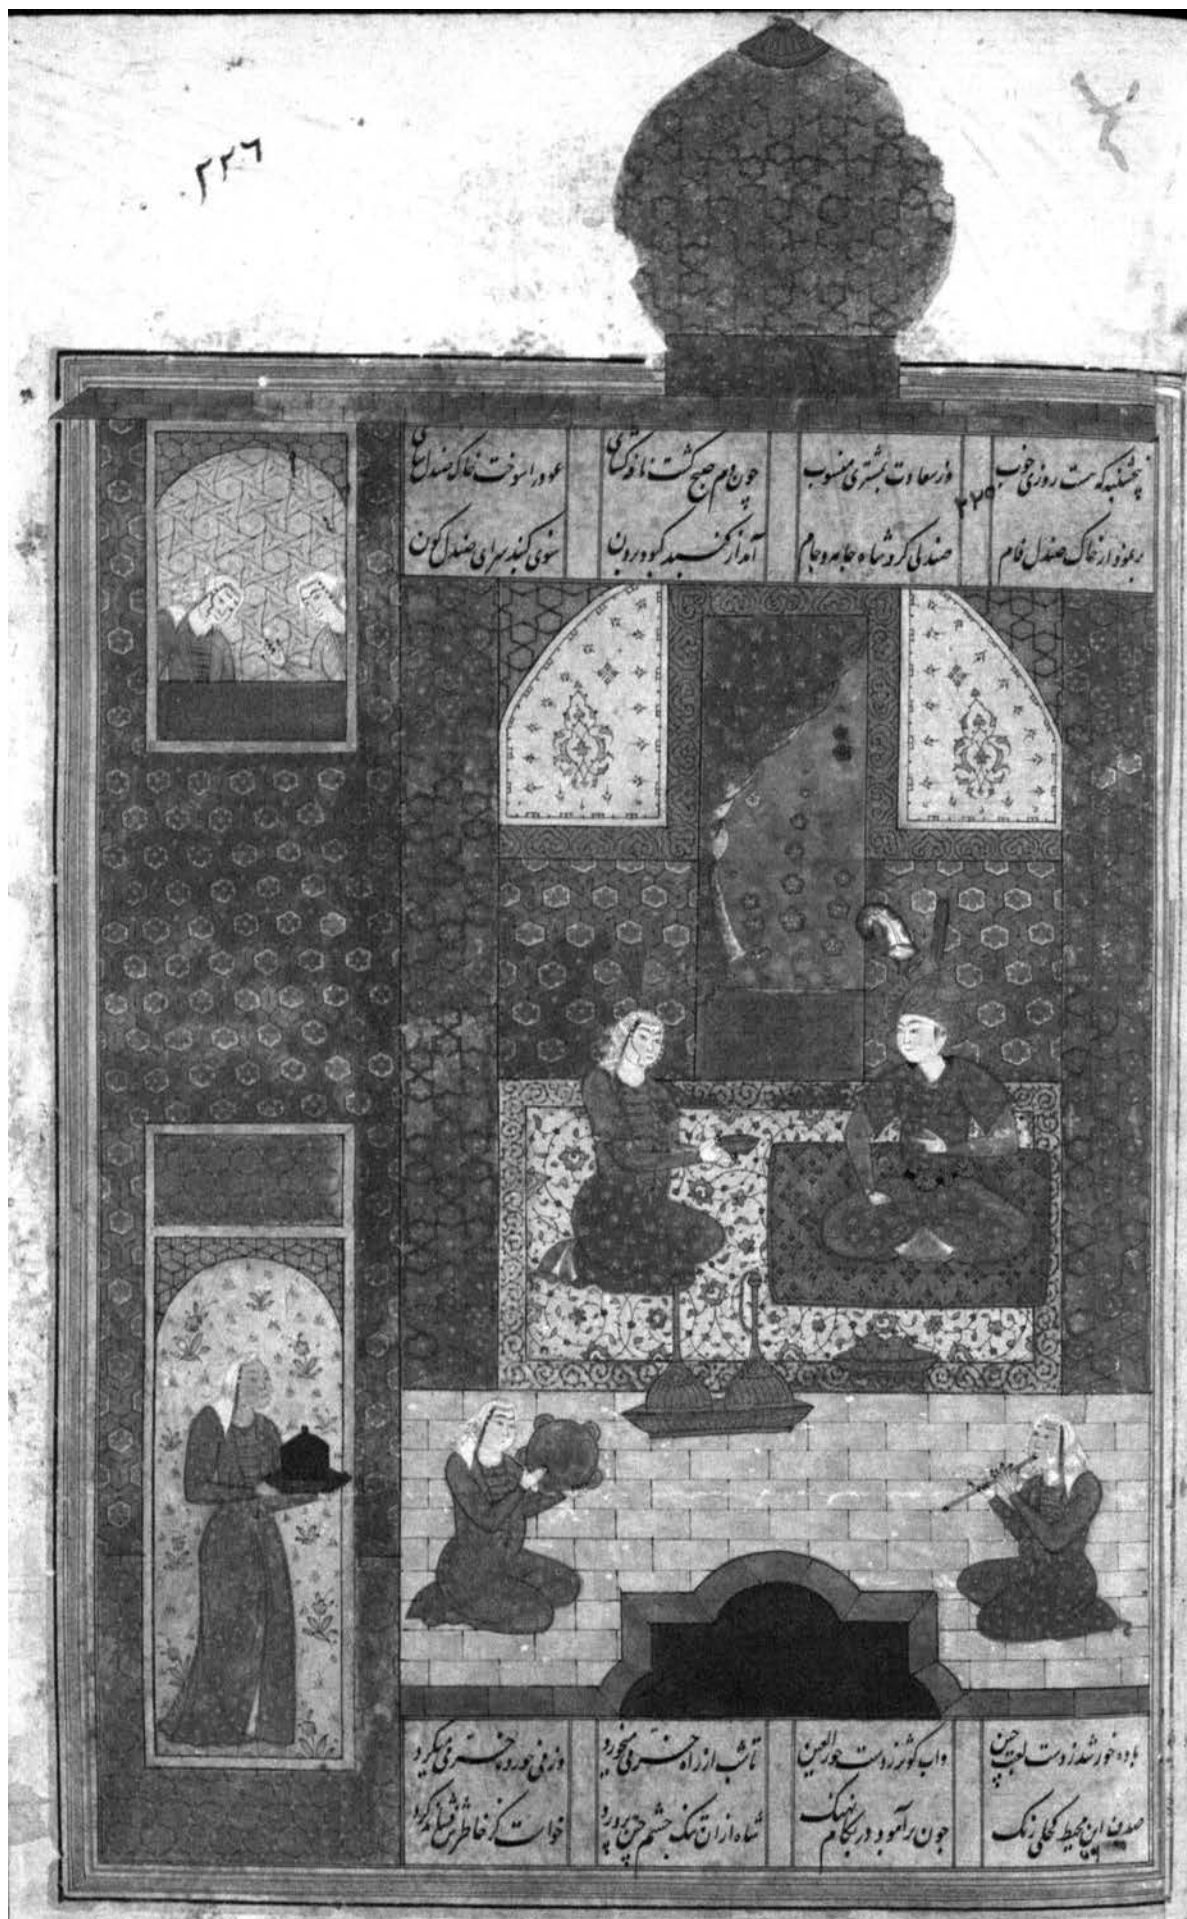 ۲۲٦
پنجشنبه که هست روزی خوب وز سعادت بمشتری منسوب چون دم صبح گشت نافه گشای عود را سوخت خاک صندل سای
۲۲۹
بر نمودار خاک صندل فام صندلی کرد شاه جامه و جام آمد از گنبد کبود برون سوی گنبد سرای صندل گون
باده خور شد ز دست لعبت چین واب کوثر ز دست حور العین تا شب از راه خرمی میخورد وز می خورده خرمی میکرد
صدف این محیط کحلی رنگ چون برآمود در بکام نهنگ شاه ازان تنگ چشم چین پرورد خواست کز خاطرش فشاند گرد